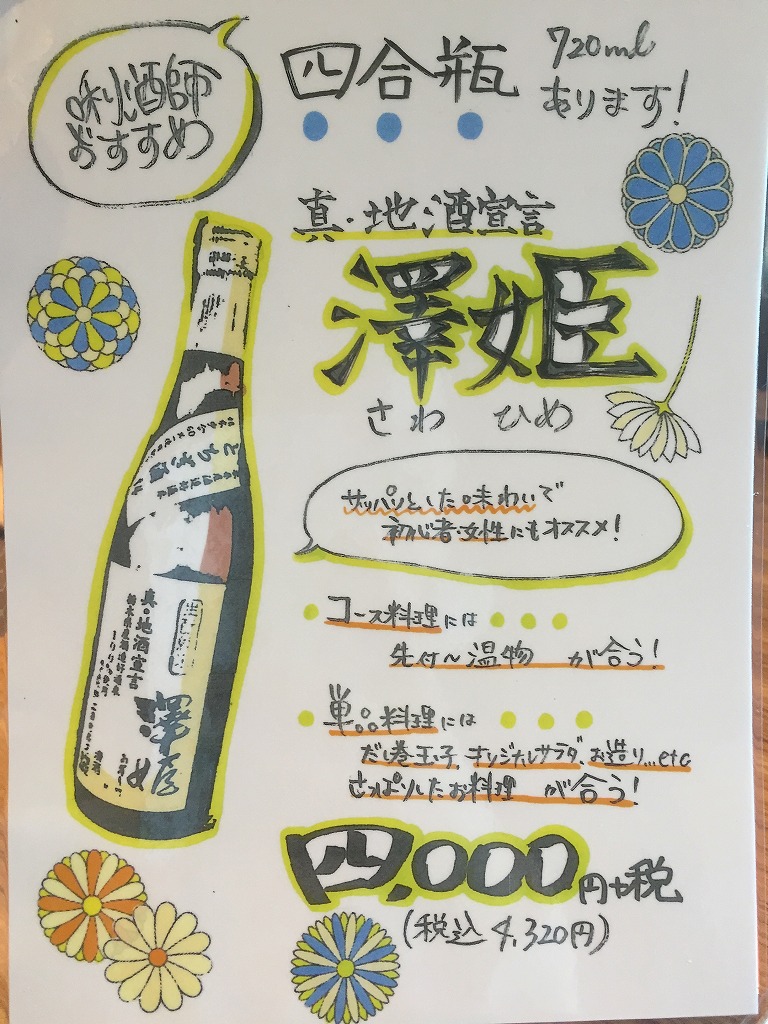 唎酒師
おすすめ
四合瓶
720ml
あります!
真・地酒宣言
澤姫
さわ ひめ
サッパリとした味わいで
初心者・女性にもオススメ!
コース料理には
先付〜温物 が合う!
単品料理には
だし巻玉子、オリジナルサラダ、お造り...etc
さっぱりしたお料理 が合う!
四,000円+税
(税込4,320円)
とちぎ酒
真・地酒宣言
澤姫